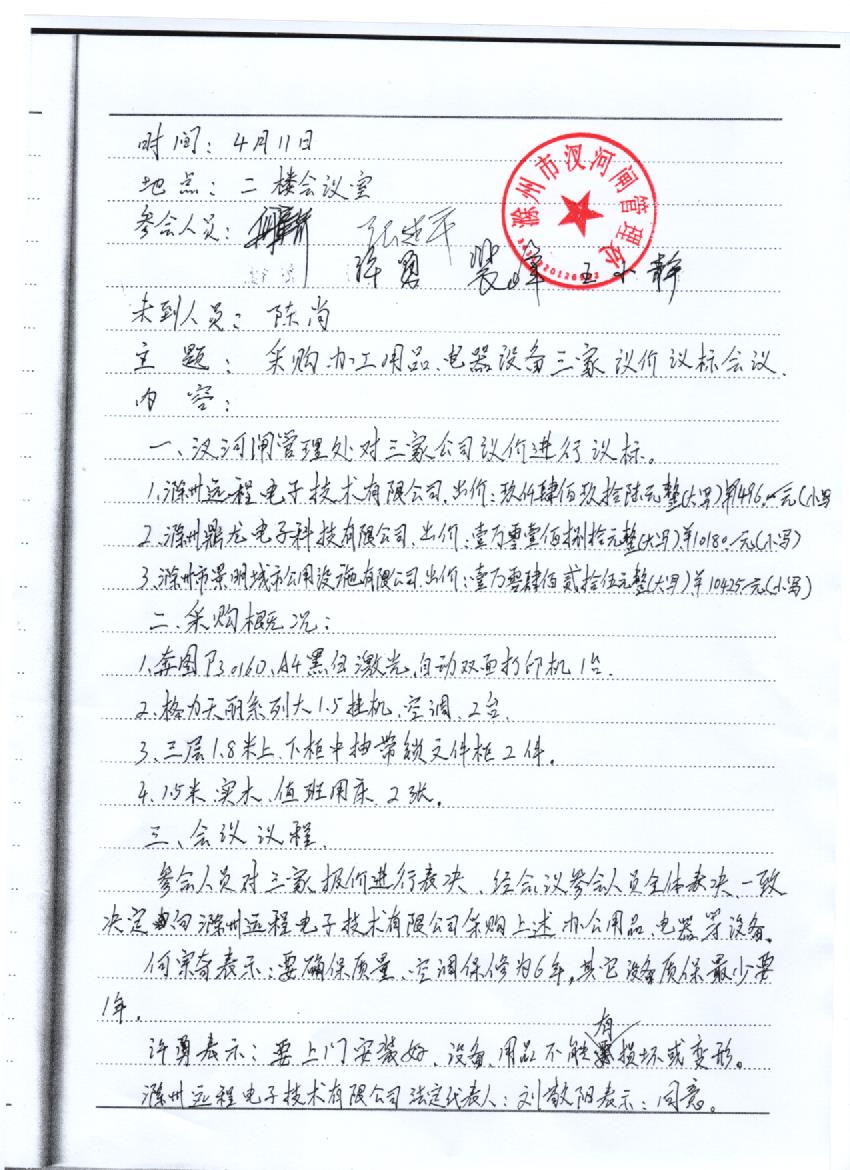 时间：4月11日
地点：二楼会议室
滁州市汊河闸管理处
参会人员：
许勇 裴峰 王小静
未到人员：陈尚
主题：采购办工用品、电器设备三家议价议标会议.
内容：
一、汊河闸管理处对三家公司议价进行议标。
1.滁州远程电子技术有限公司.出价：玖仟肆佰玖拾陆元整(大写)￥9496.元(小写
2.滁州鼎龙电子科技有限公司.出价：壹万零壹佰捌拾元整(大写)￥10180.元(小写)
3.滁州市景明城市公用设施有限公司.出价：壹万零肆佰贰拾伍元整(大写)￥10425.元(小写)
二、采购概况：
1.奔图P3016D、A4黑白激光、自动双面打印机1台.
2.格力天丽系列大1.5挂机、空调、2台.
3、三层1.8米上、下柜中抽带锁文件柜2件。
4.1.5米、实木、值班用床、2张。
三、会议议程.
参会人员对三家报价进行表决、经会议参会人员全体表决、一致
决定向滁州远程电子技术有限公司采购上述办公用品、电器等设备。
何宗奇表示：要确保质量、空调保修为6年，其它设备质保最少要
1年。
许勇表示：要上门安装好、设备、用品不能有损坏或变形。
滁州远程电子技术有限公司法定代表人：刘敬阳表示：同意。